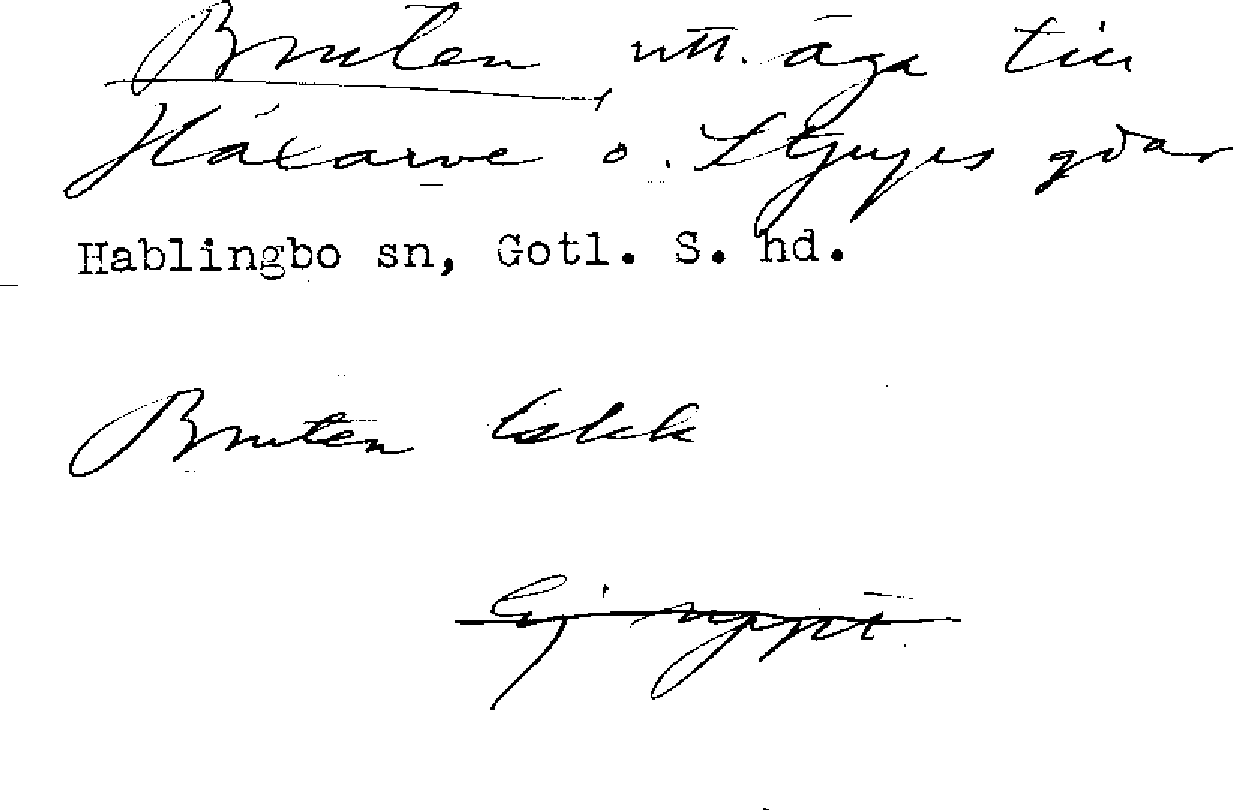 Bruten utt. äga till
Håkarve o. Stjups gdar
Hablingbo sn, Gotl. S. hd.
Bruten Eskk
Ej uppt.